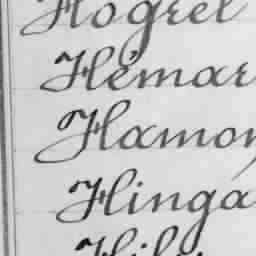 Hogrel
Hémar
Hamon
Hinga